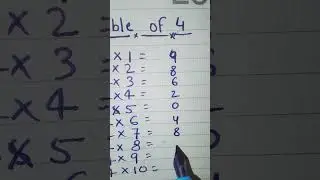 ble of 4
× 1 = 4
× 2 = 8
× 3 = 6
× 4 = 2
× 5 = 0
× 6 = 4
× 7 = 8
× 8 =
× 9 =
× 10 =
× 2
× 3
× 4
× 5
× 6
× 7
× 8